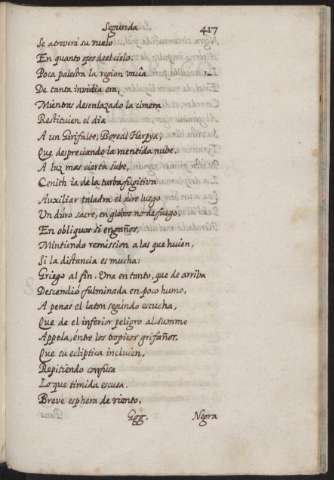 Segunda 427
Se atreviri su vuelo
En quanto ojos del cielo.
Poca palestra la region vacia
De tanta invidia era,
Mientras desenlazado la cimera
Restituien el dia
A un Girifalte, Boreal Harpya,
Que despreciando la mentida nube,
A luz mas cierta sube,
Cenith ia de la turba fugitiva
Auxiliar taladra el aire luego
Un duro sacre, en globos no de fuego,
En obliquos si engaños,
Mintiendo remission a las que huien,
Si la distancia es mucha:
Griego al fin. Una en tanto, que de arriba
Descendiò fulminada en poco humo,
A penas el laton segundo escucha,
Que de el inferior peligro al summo
Appela, entre los tropicos grifaños,
Que su ecliptica incluien,
Repitiendo confusa
Lo que timida escusa.
Breve esphera de viento,
Ggg. Negra